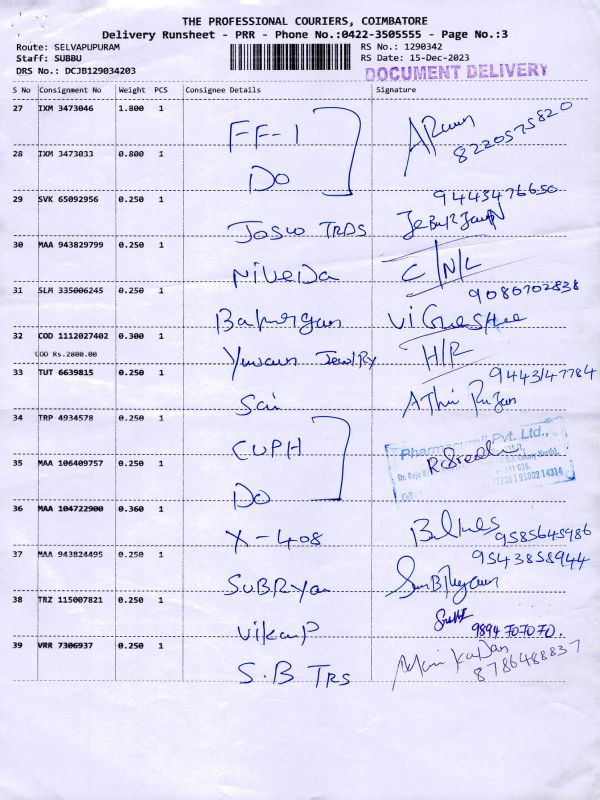 THE PROFESSIONAL COURIERS, COIMBATORE
Delivery Runsheet - PRR - Phone No.:0422-3505555 - Page No.:3
Route: SELVAPUPURAM RS No.: 1290342
Staff: SUBBU RS Date: 15-Dec-2023
DRS No.: DCJB129034203 DOCUMENT DELIVERY
S No Consignment No Weight PCS Consignee Details Signature
27 IXM 3473046 1.800 1 FF-1 8220575820
28 IXM 3473033 0.800 1 Do
29 SVK 65092956 0.250 1 Josco TRDS 9443476650
30 MAA 943829799 0.250 1 NiveDa C/N/L
31 SLM 335006245 0.250 1 9080702838
32 COD 1112027402 0.300 1 H/R
COD Rs.2800.00
33 TUT 6639815 0.250 1 Sai 9443147784
34 TRP 4934578 0.250 1 CUPH Pvt. Ltd.,
35 MAA 106409757 0.250 1 Do
36 MAA 104722900 0.360 1 X-408 9585645986
37 MAA 943824495 0.250 1 SUBRyan 9543858944
38 TRZ 115007821 0.250 1 9894 70 70 70.
39 VRR 7306937 0.250 1 S.B TRS 8786488837